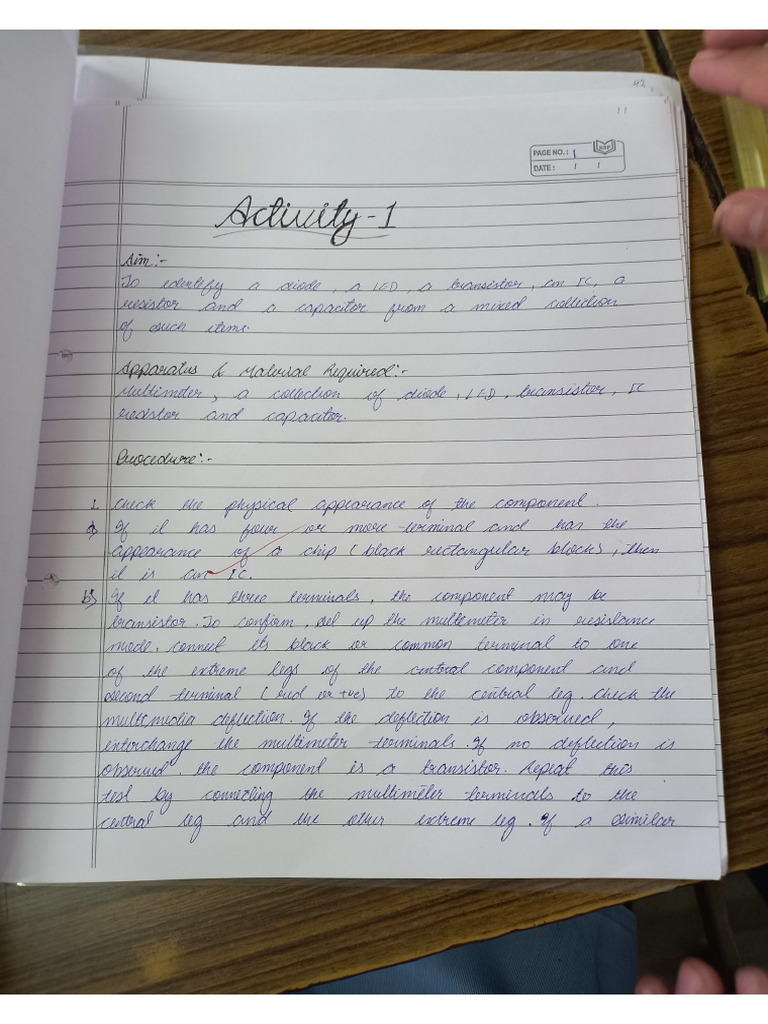 PAGE NO.: 1
DATE: / /
Activity-1
Aim:-
To identify a diode, a LED, a transistor, an IC, a
resistor and a capacitor from a mixed collection
of such items.
Apparatus & Material Required:-
Multimeter, a collection of diode, LED, transistor, IC
resistor and capacitor.
Procedure:-
1. Check the physical appearance of the component.
a) If it has four or more terminal and has the
appearance of a chip (black rectangular blocks), then
it is an IC.
b) If it has three terminals, the component may be
transistor. To confirm, set up the multimeter in resistance
mode. connect its black or common terminal to one
of the extreme legs of the central component and
second terminal (red or +ve) to the central leg. Check the
multimedia deflection. If the deflection is observed,
interchange the multimeter terminals. If no deflection is
observed. the component is a transistor. Repeat this
test by connecting the multimeter terminals to the
central leg and the other extreme leg. If a similar